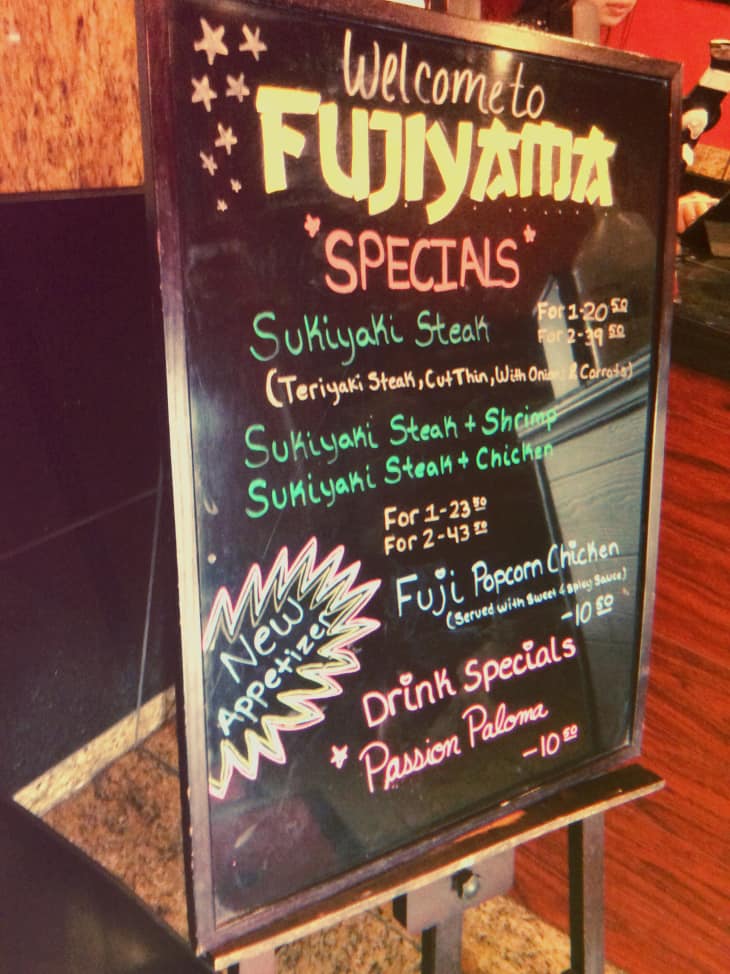 Welcome to
FUJIYAMA
*SPECIALS*
Sukiyaki Steak
For 1-20 50
For 2-39 50
(Teriyaki Steak, Cut Thin, With Onion & Carrots)
Sukiyaki Steak + Shrimp
Sukiyaki Steak + Chicken
For 1-23 50
For 2-43 50
New
Appetizer
Fuji Popcorn Chicken
(Served with Sweet & Spicy Sauce)
-10 50
Drink Specials
* Passion Paloma
-10 50